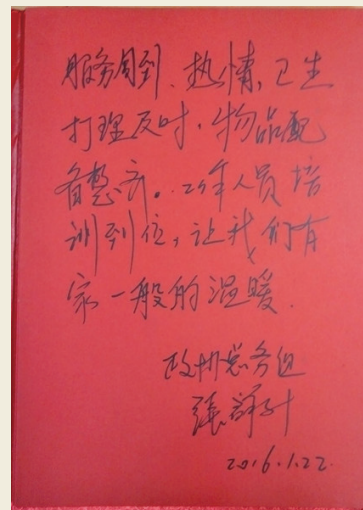 服务周到、热情,卫生
打理及时,物品配
备整齐。工作人员培
训到位,让我们有
家一般的温暖.
政协总务组
张
2016.1.22.